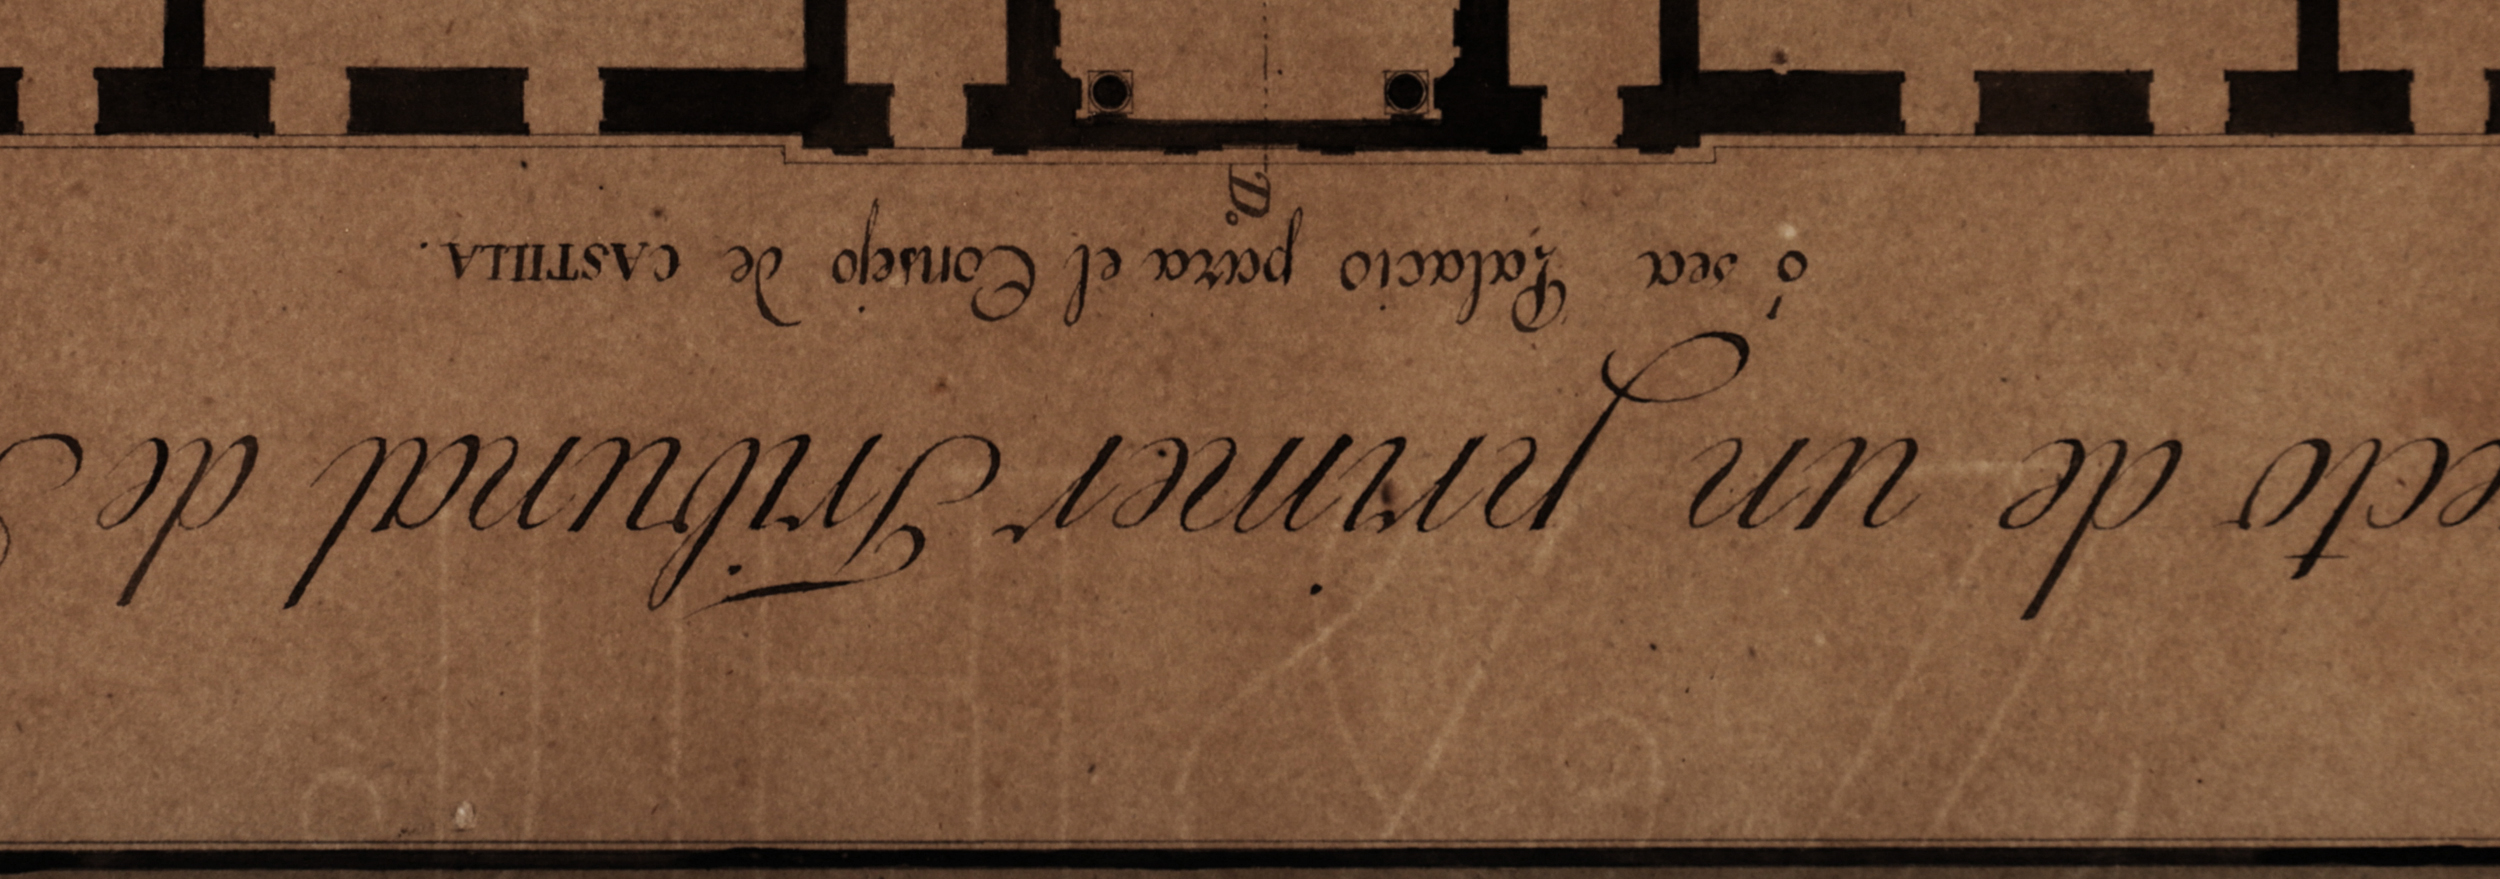 ecto de un primer Tribunal de
ó sea Palacio para el Consejo de CASTILLA.
D.